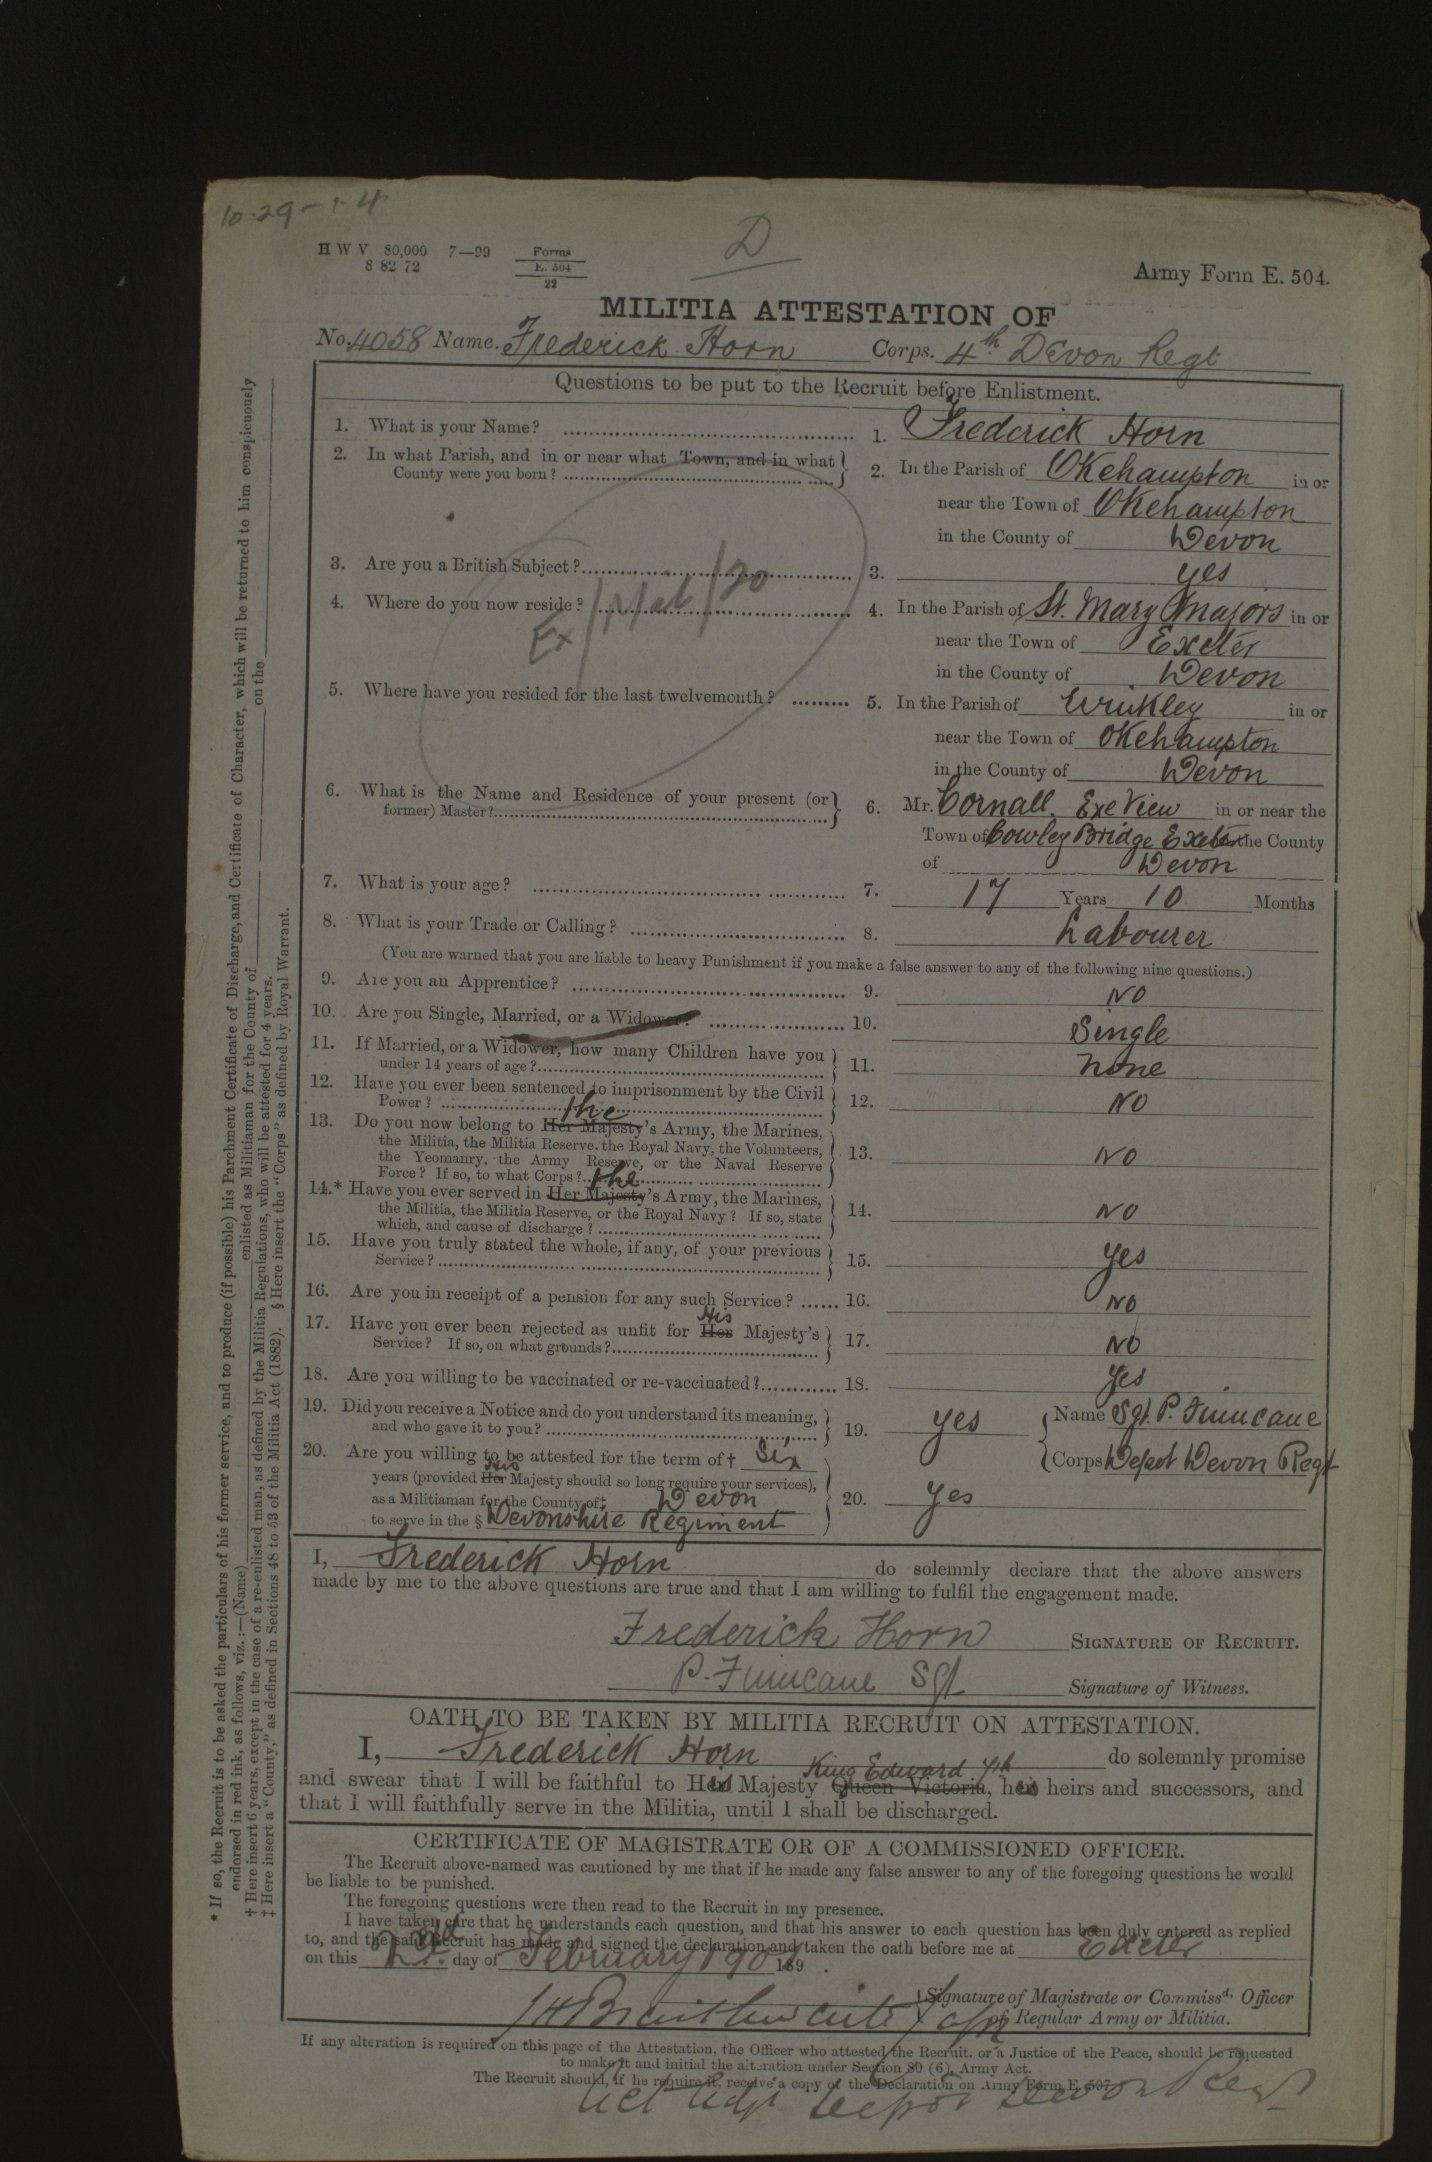 10-29-1-4
H W V 80,000 7—99 Forms
8 82 72 E. 504
22
D
Army Form E. 504.
MILITIA ATTESTATION OF
No. 4058 Name. Frederick Horn Corps. 4th Devon Regt
Questions to be put to the Recruit before Enlistment.
1. What is your Name? 1. Frederick Horn
2. In what Parish, and in or near what Town, and in what 2. In the Parish of Okehampton in or
County were you born? near the Town of Okehampton
in the County of Devon
3. Are you a British Subject? 3. yes
Ex/Mil/20
4. Where do you now reside? 4. In the Parish of St. Mary Majors in or
near the Town of Exeter
in the County of Devon
5. Where have you resided for the last twelvemonth? 5. In the Parish of Winkley in or
near the Town of Okehampton
in the County of Devon
6. What is the Name and Residence of your present (or 6. Mr. Cornall, Exe View in or near the
former) Master? Town of Cowley Bridge Exeter the County
of Devon
7. What is your age? 7. 17 Years 10 Months
8. What is your Trade or Calling? 8. Labourer
(You are warned that you are liable to heavy Punishment if you make a false answer to any of the following nine questions.)
9. Are you an Apprentice? 9. No
10. Are you Single, Married, or a Widower? 10. Single
11. If Married, or a Widower, how many Children have you 11. None
under 14 years of age?
12. Have you ever been sentenced to imprisonment by the Civil 12. No
Power?
the
13. Do you now belong to Her Majesty's Army, the Marines, 13. No
the Militia, the Militia Reserve, the Royal Navy, the Volunteers,
the Yeomanry, the Army Reserve, or the Naval Reserve
Force? If so, to what Corps?
the
14.* Have you ever served in Her Majesty's Army, the Marines, 14. No
the Militia, the Militia Reserve, or the Royal Navy? If so, state
which, and cause of discharge?
15. Have you truly stated the whole, if any, of your previous 15. Yes
Service?
16. Are you in receipt of a pension for any such Service? 16. No
His
17. Have you ever been rejected as unfit for Her Majesty's 17. No
Service? If so, on what grounds?
18. Are you willing to be vaccinated or re-vaccinated? 18. Yes
19. Did you receive a Notice and do you understand its meaning, 19. yes Name Sgt. P. Finucane
and who gave it to you? Corps Depot Devon Regt
20. Are you willing to be attested for the term of † Six 20. Yes
His
years (provided Her Majesty should so long require your services),
as a Militiaman for the County of ‡ Devon
to serve in the § Devonshire Regiment
I, Frederick Horn do solemnly declare that the above answers
made by me to the above questions are true and that I am willing to fulfil the engagement made.
Frederick Horn SIGNATURE OF RECRUIT.
P. Finucane Sgt Signature of Witness.
OATH TO BE TAKEN BY MILITIA RECRUIT ON ATTESTATION.
I, Frederick Horn do solemnly promise
King Edward 7th
and swear that I will be faithful to His Majesty Queen Victoria, his heirs and successors, and
that I will faithfully serve in the Militia, until I shall be discharged.
CERTIFICATE OF MAGISTRATE OR OF A COMMISSIONED OFFICER.
The Recruit above-named was cautioned by me that if he made any false answer to any of the foregoing questions he would
be liable to be punished.
The foregoing questions were then read to the Recruit in my presence.
I have taken care that he understands each question, and that his answer to each question has been duly entered as replied
to, and the said Recruit has made and signed the declaration and taken the oath before me at Exeter
on this day of February 1901 189 .
Braithwaite Capt Signature of Magistrate or Commissd. Officer
of Regular Army or Militia.
If any alteration is required on this page of the Attestation, the Officer who attested the Recruit, or a Justice of the Peace, should be requested
to make it and initial the alteration under Section 80 (6), Army Act.
The Recruit should, if he require it, receive a copy of the Declaration on Army Form E. 507.
Act Adjt Depot Devon Regt
* If so, the Recruit is to be asked the particulars of his former service, and to produce (if possible) his Parchment Certificate of Discharge, and Certificate of Character, which will be returned to him conspicuously
endorsed in red ink, as follows, viz.:—(Name) enlisted as Militiaman for the County of on the
† Here insert 6 years, except in the case of a re-enlisted man, as defined by the Militia Regulations, who will be attested for 4 years.
‡ Here insert a "County," as defined in Sections 48 to 53 of the Militia Act (1882). § Here insert the "Corps" as defined by Royal Warrant.